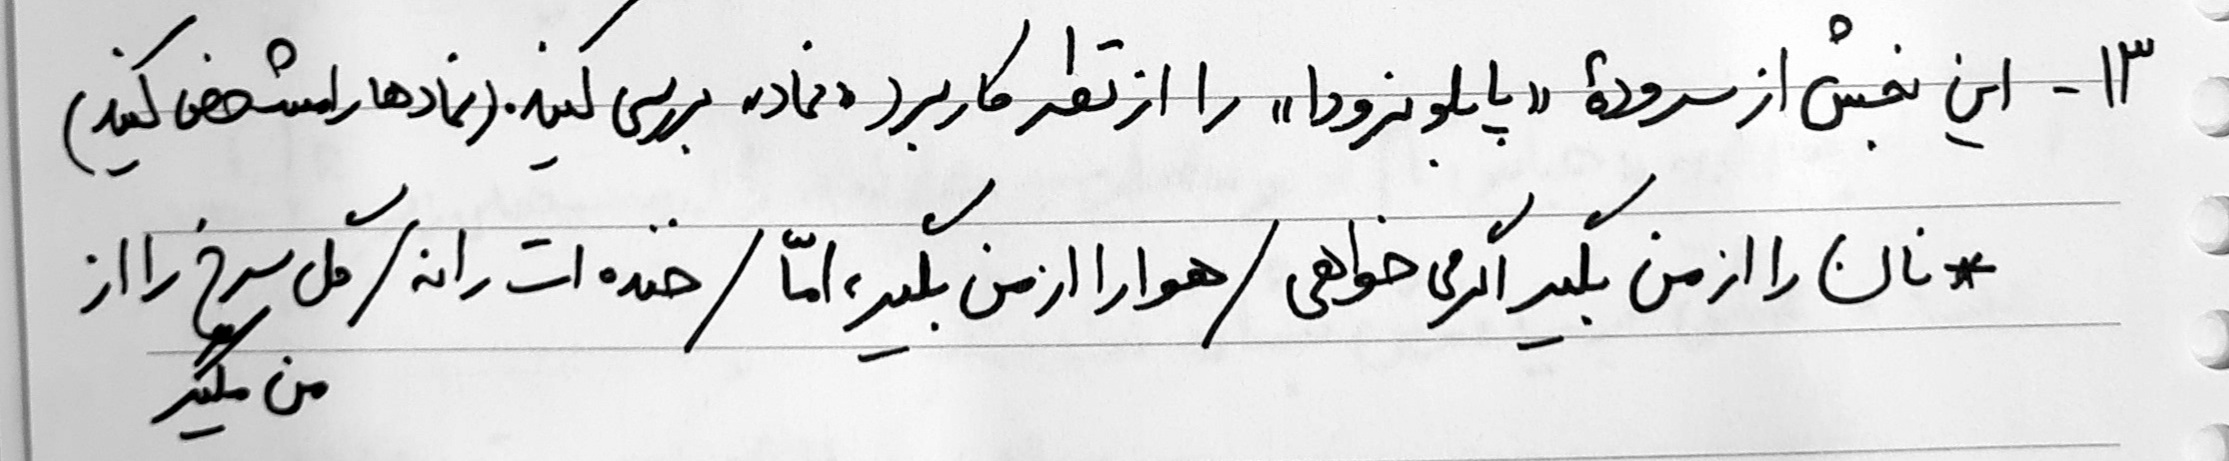 ۱۳- این بخش از سرودهٔ «پابلو نرودا» را از نظر کاربرد «نماد» بررسی کنید. (نمادها را مشخص کنید)
* نان را از من بگیر اگر می خواهی / هوا را از من بگیر، امّا / خنده ات را نه / گل سرخ را از
من مگیر